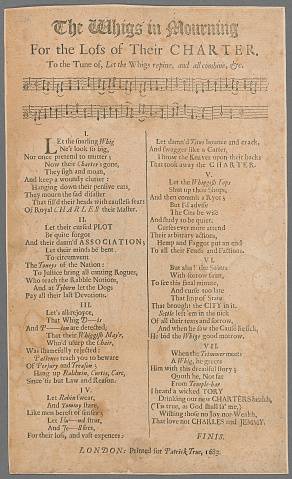 The Whigs in Mourning
For the Loss of Their CHARTER.
To the Tune of, Let the Whigs repine, and all combine, &c.
I.
Let the snarling Whig
Ne'r look so big,
Nor once pretend to mutter;
Now their Charter's gone,
They sigh and moan,
And keep a woundly clutter:
Hanging down their pensive ears,
They mourn the sad disaster
That fill'd their heads with causeless fears
Of Royal CHARLES their Master.
II.
Let their cursed PLOT
Be quite forgot
And their damn'd ASSOCIATION;
Let their minds be bent
To circumvent
The Toneys of the Nation:
To Justice bring all canting Rogues,
Who teach the Rabble Notion,
And at Tyburn let the Dogs
Pay all their last Devotions.
III.
Let's all rejoyce,
That Whig
And
are detected;
That their Whiggish May'r,
Who'd usurp the Chair,
Was shamefully rejected:
Patience teach you to beware
Of Perjury and Treason;
Hang up Baldwin, Curtis, Care,
Since 'tis but Law and Reason.
IV.
Let Robin swear,
And Tommy stare,
Like men bereft of senses;
Let
rant,
And
For their loss, and vast expences:
Let damn'd Titus bounce and crack,
And swagger like a Carter,
I know the Knaves upon their backs
That took away the CHARTER.
V.
Let the Whiggish Tops
Shut up their Shops,
And then commit a Ryot;
But I'd advise
The Cits be wise
And study to be quiet:
Curses ever more attend
Their arbitrary actions,
Hemp and Faggot put an end
To all their Feuds and Factions.
VI.
But alas! the Saints
With sorrow faint,
To see this fatal minute,
And curse too late
That Imp of State
That brought the CITY in it.
Settle left 'em in the nick
Of all their tears and sorrow,
And when he saw the Cause fall sick,
He bid the Whigs good morrow.
VII.
When the Trimmer meets
A Whig, he greets
Him with this dreadful story;
Quoth he, Not far
From Temple-bar
I heard a wicked TORY
Drinking our new CHARTERS health,
('Tis true, as God shall sa' me,)
Wishing those no Joy nor Wealth,
That love not CHARLES and JEMMY.
FINIS.
LONDON: Printed for Patrick True, 1683.